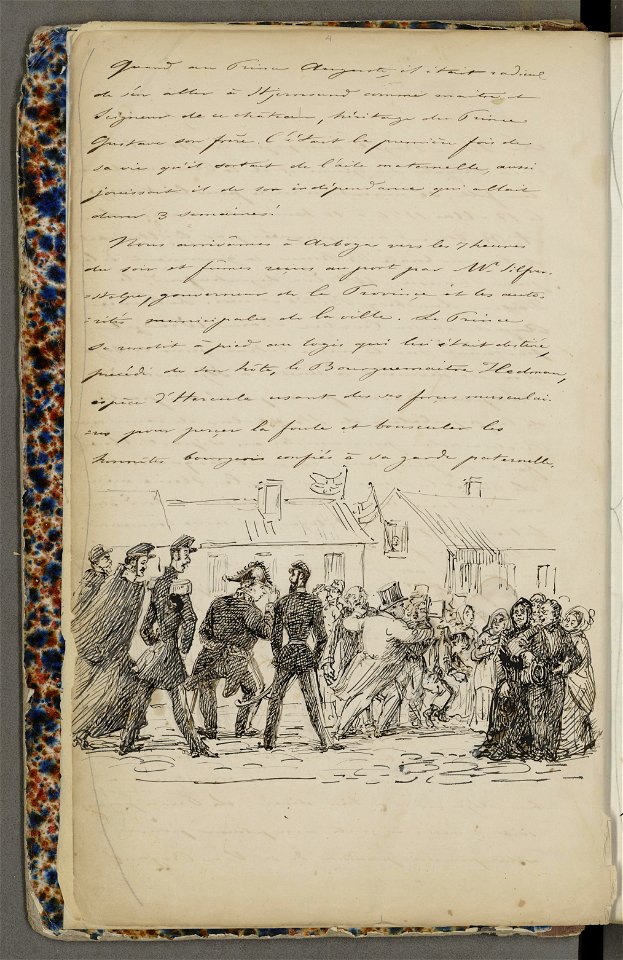 4
Quand au Prince Auguste, il était radieux
de s'en aller à Stjernsund comme maître et
Seigneur de ce château, héritage du Prince
Gustave son frère. C'était la première fois de
sa vie qu'il sortait de l'aile maternelle, aussi
jouissait il de son indépendance qui allait
durer 3 semaines!
Nous arrivâmes à Arboga vers les 7 heures
du soir et fûmes reçus au port par Mr. Silfver-
stolpe, gouverneur de la Province et les auto-
rités municipales de la ville. Le Prince
se rendit à pied au logis qui lui était destiné,
précédé de son hôte, le Bourguemaître Hedman,
espèce d'Hercule usant de ses forces musculai-
res pour percer la foule et bousculer les
honnêtes bourgeois confiés à sa garde paternelle.